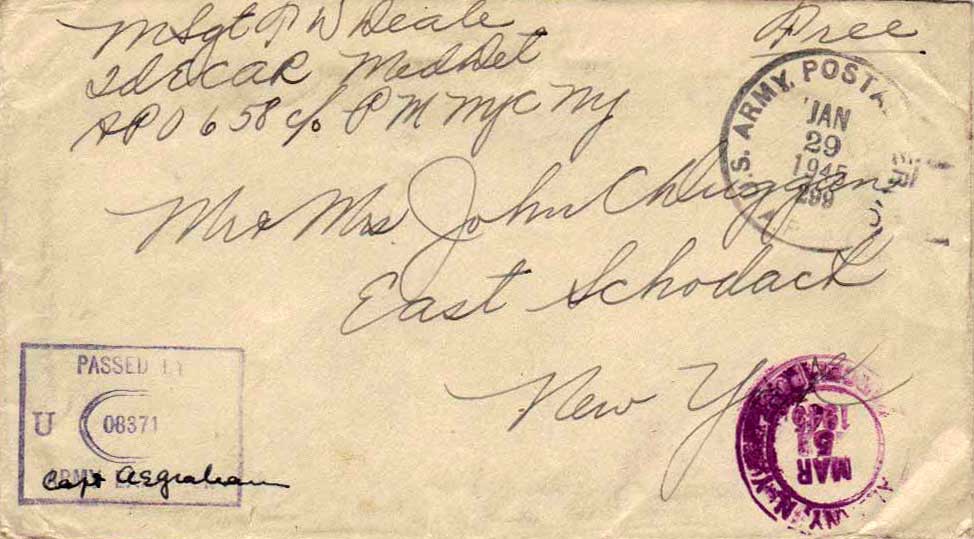 MSgt P W Deale
2d ECAR Med Det
APO 658 c/o P M NYC NY
Free
U.S. ARMY POSTAL
JAN
29
1945
299
Mr & Mrs John C Duggan
East Schodack
New York
PASSED BY
U
08371
ARMY
Capt A E Graham
MAR
1945